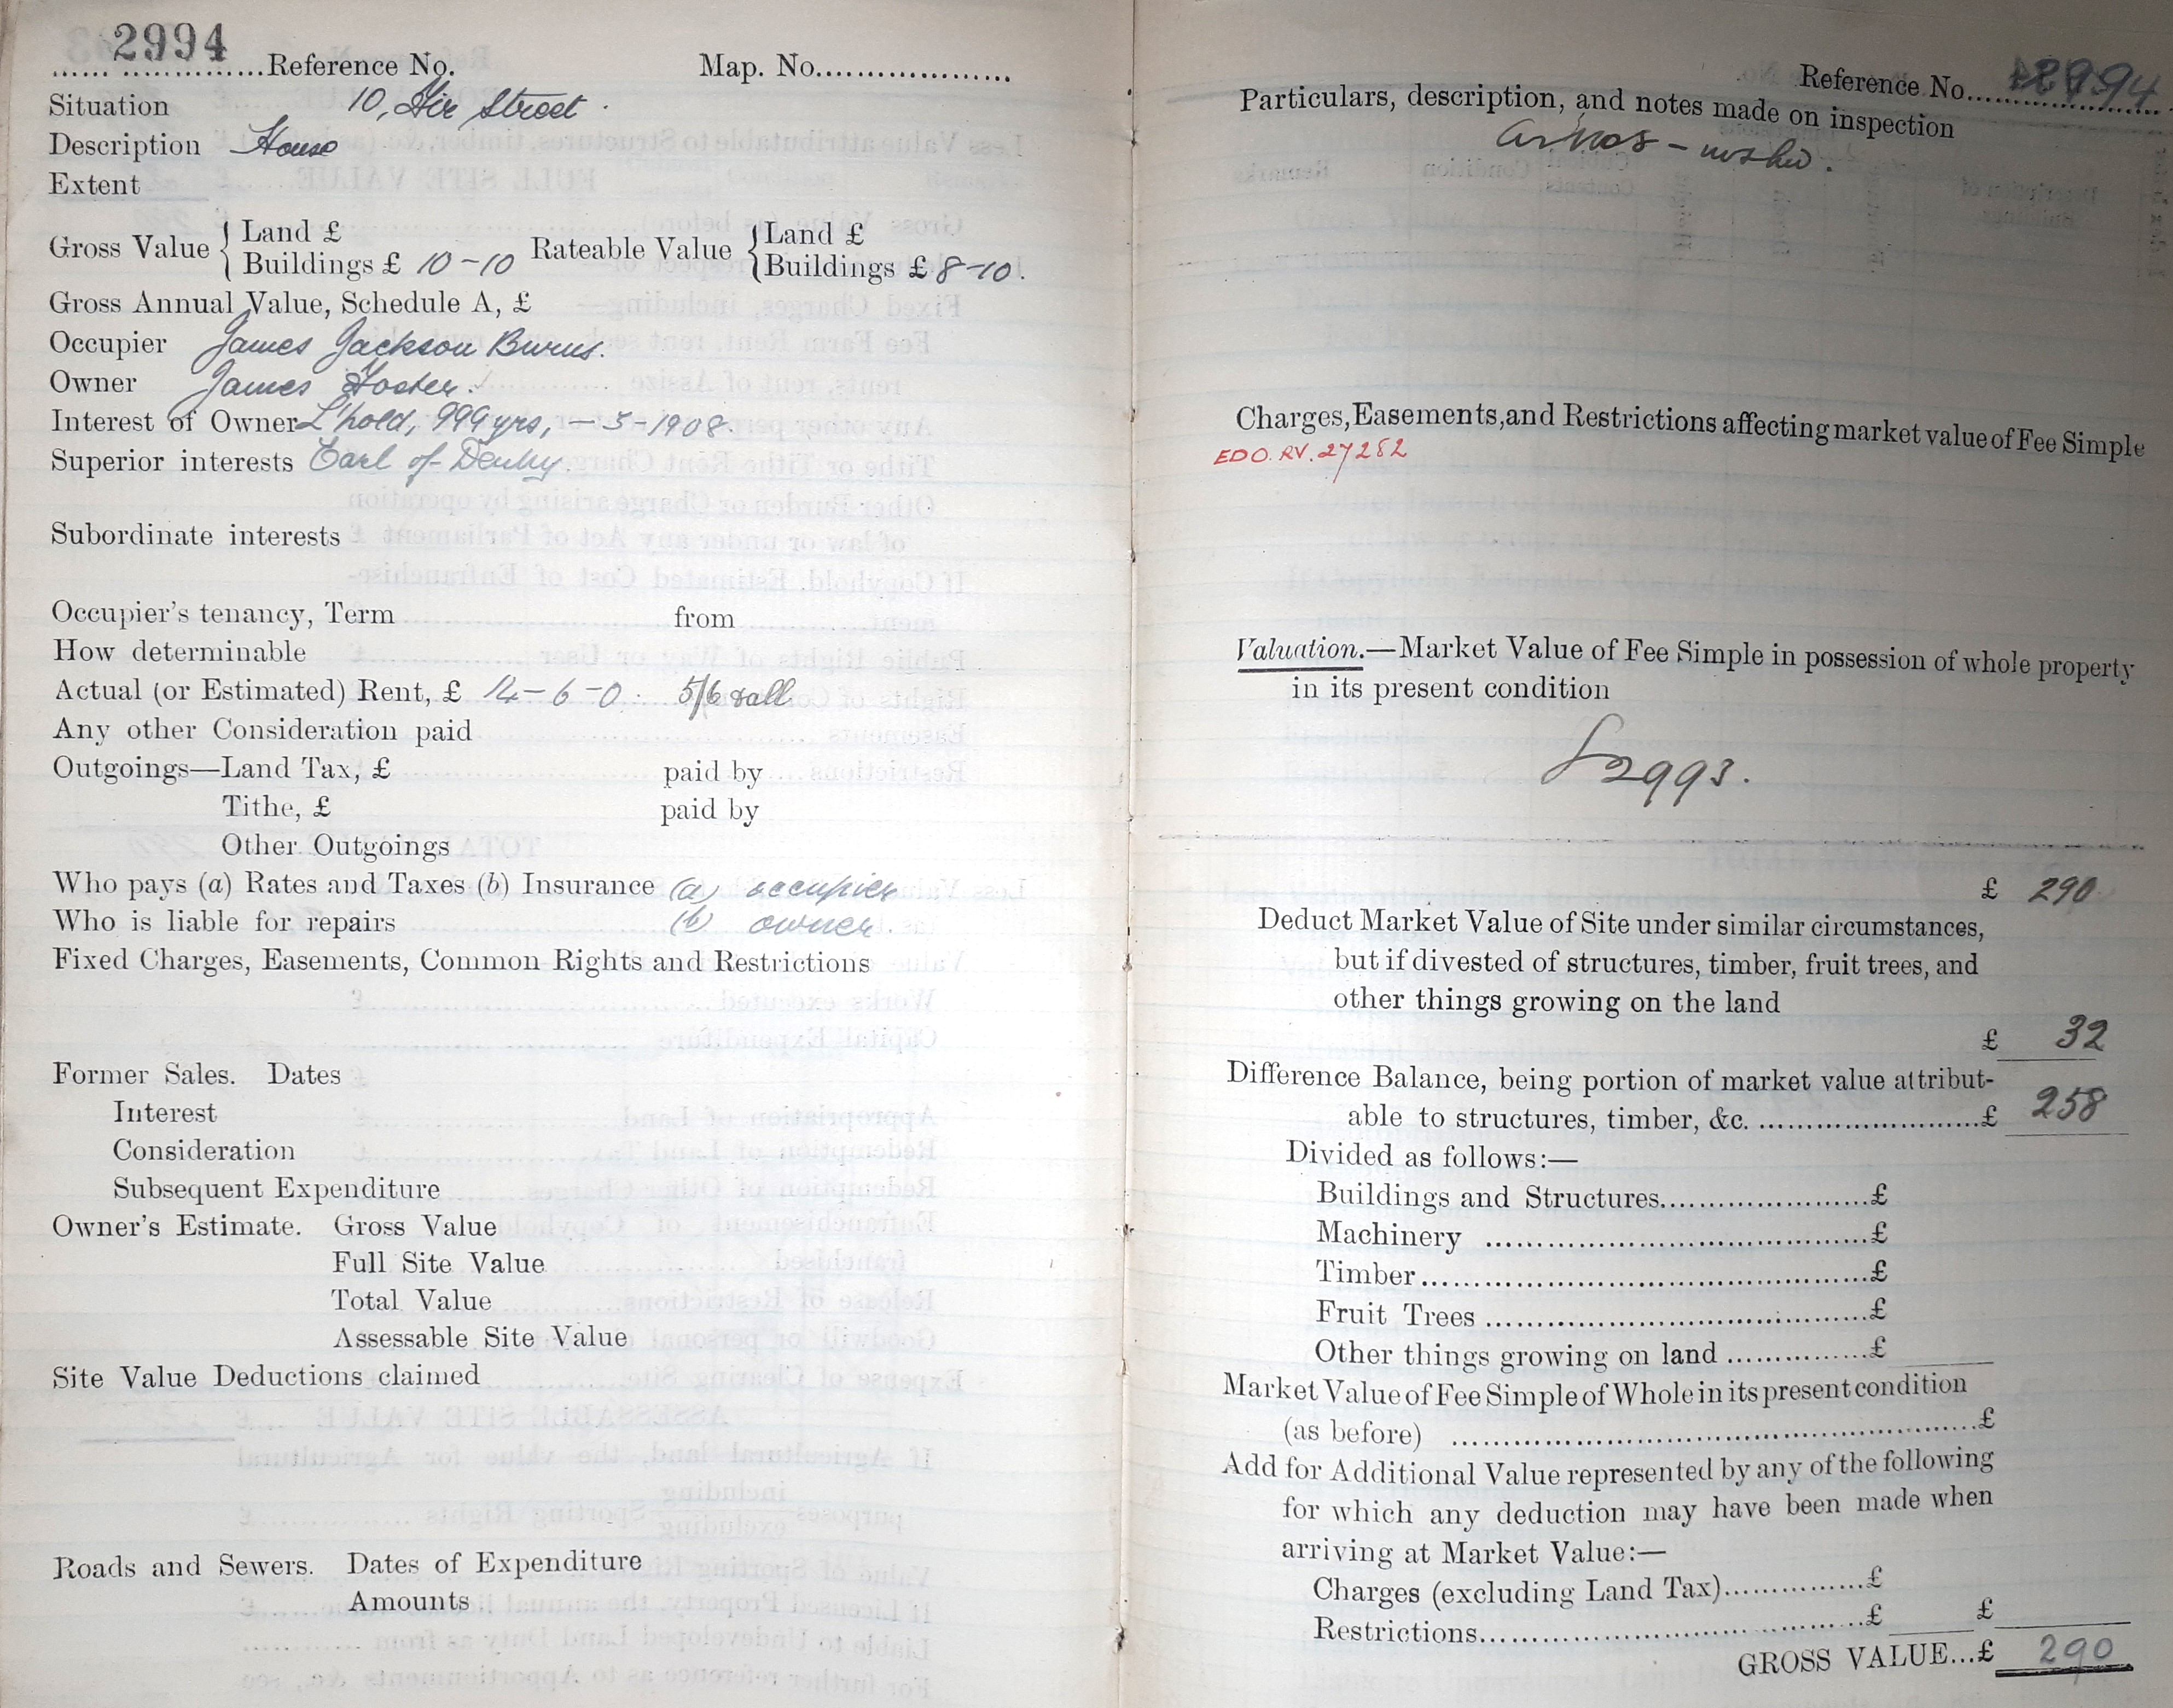 2994
...... ...............Reference No.
Map. No.....................
Situation 10, Air Street.
Description House
Extent
Gross Value { Land £
Buildings £ 10-10
Rateable Value { Land £
Buildings £ 8-10.
Gross Annual Value, Schedule A, £
Occupier James Jackson Burns.
Owner James Foster.
Interest of Owner L'hold, 999 yrs, - 5-1908.
Superior interests Earl of Derby.
Subordinate interests
Occupier's tenancy, Term from
How determinable
Actual (or Estimated) Rent, £ 14-6-0. 5/6
Any other Consideration paid
Outgoings—Land Tax, £ paid by
Tithe, £ paid by
Other Outgoings
Who pays (a) Rates and Taxes (b) Insurance (a) occupier
Who is liable for repairs (b) owner.
Fixed Charges, Easements, Common Rights and Restrictions
Former Sales. Dates
Interest
Consideration
Subsequent Expenditure
Owner's Estimate. Gross Value
Full Site Value
Total Value
Assessable Site Value
Site Value Deductions claimed
Roads and Sewers. Dates of Expenditure
Amounts
Reference No. 2994
Particulars, description, and notes made on inspection
Charges, Easements, and Restrictions affecting market value of Fee Simple
EDO. RV. 27252
Valuation.—Market Value of Fee Simple in possession of whole property
in its present condition
2993.
£ 290
Deduct Market Value of Site under similar circumstances,
but if divested of structures, timber, fruit trees, and
other things growing on the land
£ 32
Difference Balance, being portion of market value attribut-
able to structures, timber, &c. ........................£ 258
Divided as follows:—
Buildings and Structures.......................£
Machinery .........................................£
Timber................................................£
Fruit Trees .........................................£
Other things growing on land ...............£
Market Value of Fee Simple of Whole in its present condition
(as before) ..........................................................£
Add for Additional Value represented by any of the following
for which any deduction may have been made when
arriving at Market Value:—
Charges (excluding Land Tax)...............£
Restrictions.........................................£ £
GROSS VALUE...£ 290